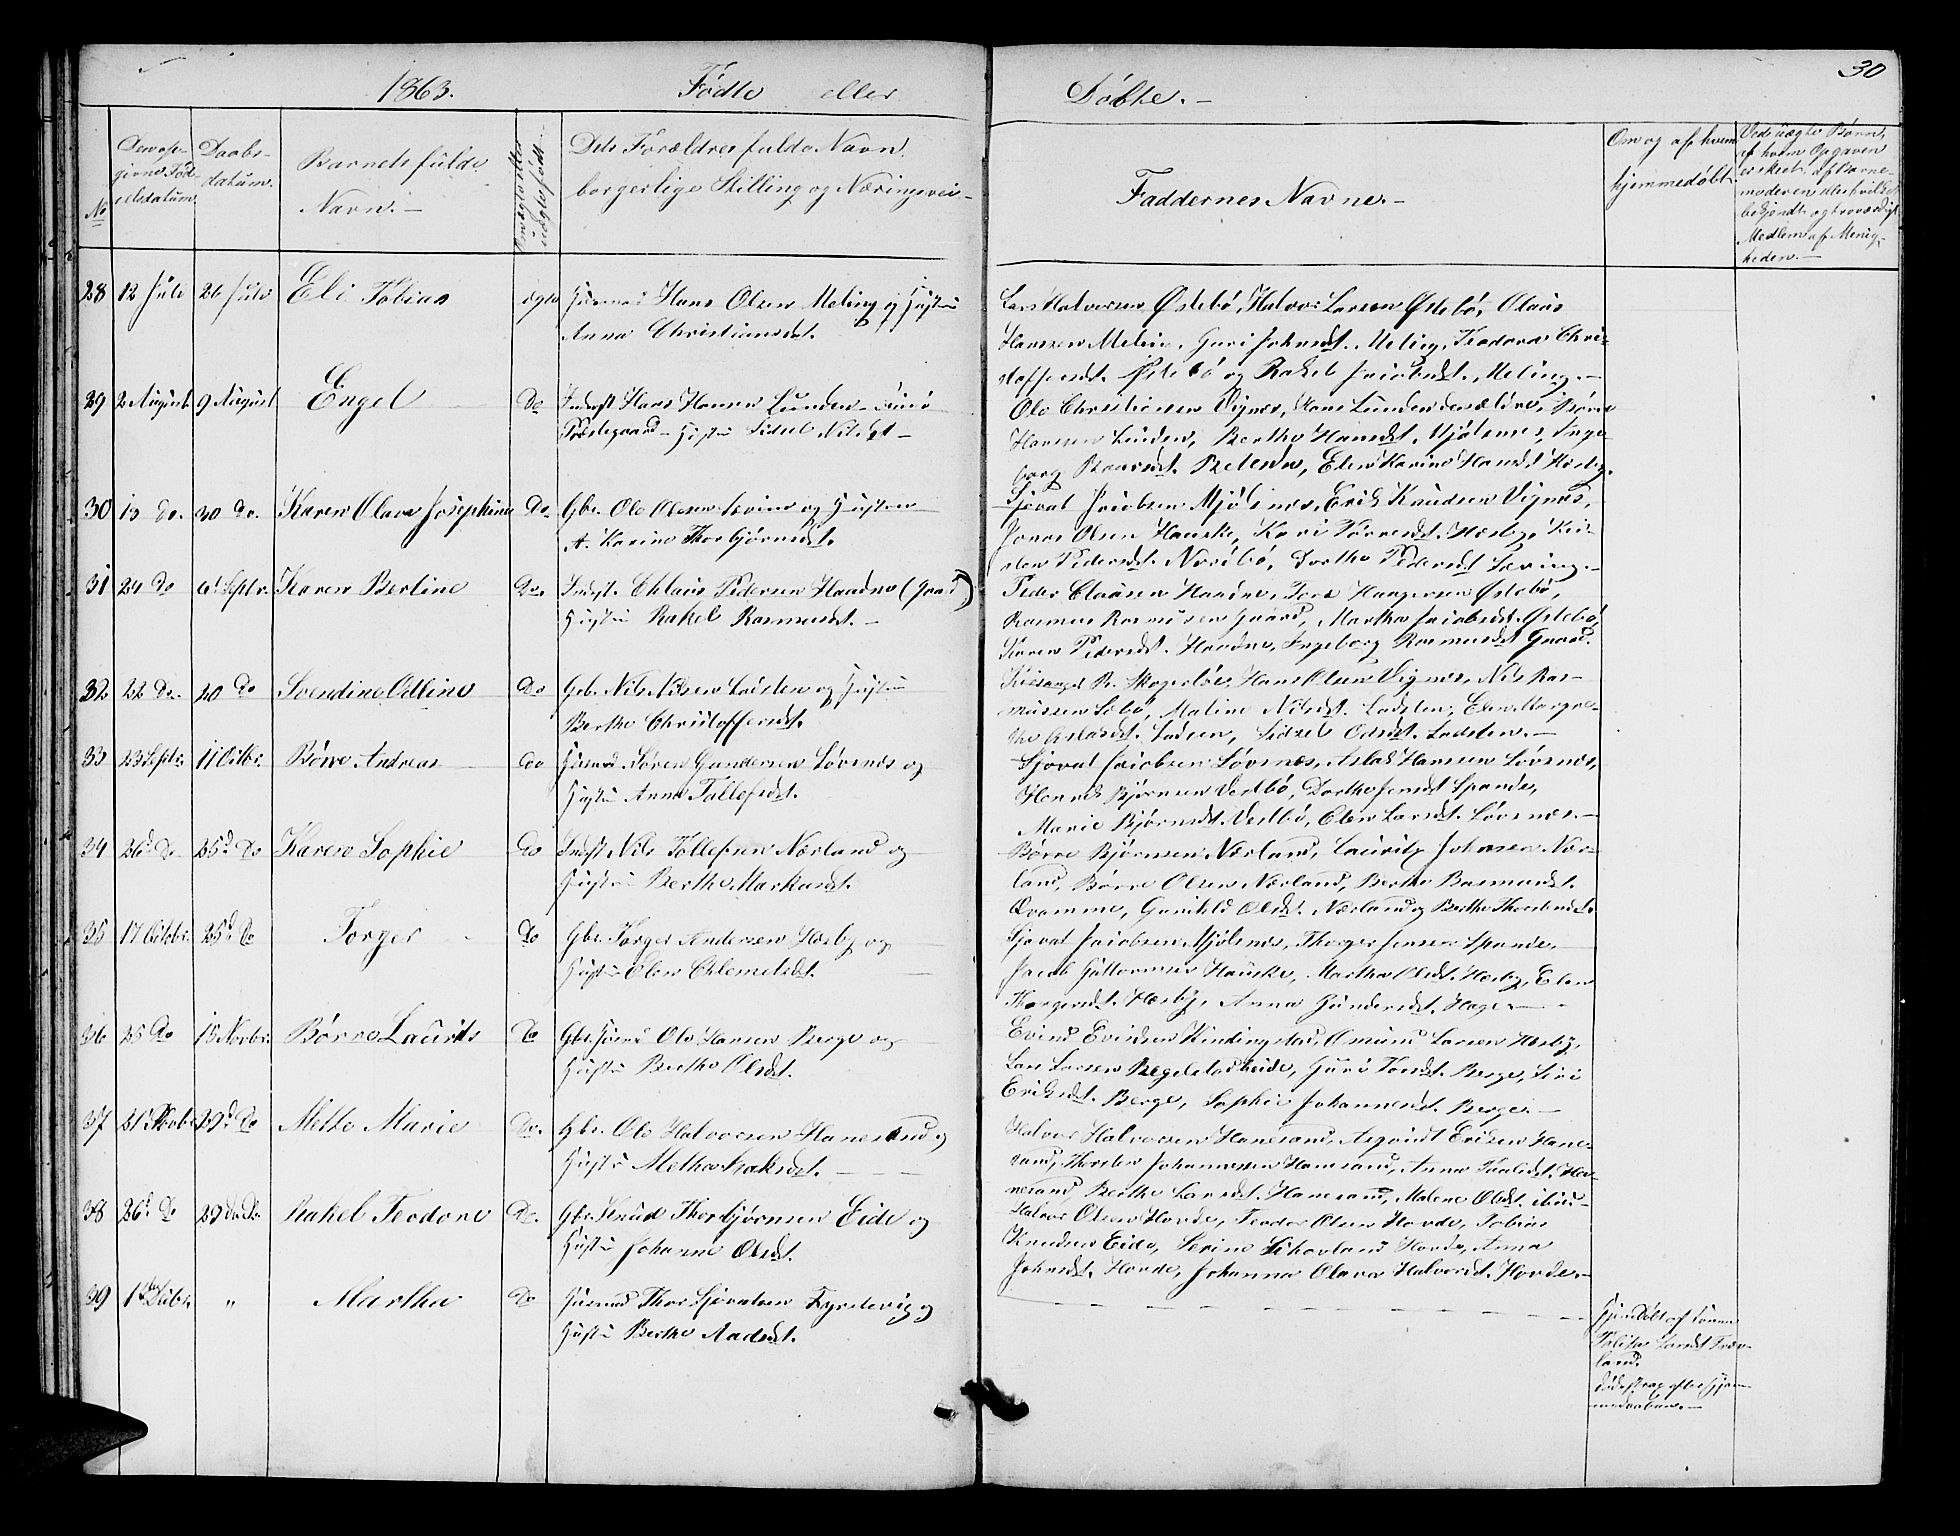 30
1863. Fødte eller Døbte.
No
Den opgivne Fødselsdatum
Daabsdatum.
Barnets fulde Navn.
Om ægte eller uægte født.
Dets Forældres fulde Navn, borgerlige Stilling og Næringsvei
Faddernes Navne.
Om og af hvem hjemmedøbt
Ved uægte Børn, af hvem Opgaven er skeet, af Barnemoderen eller hvilket bekjendt og troværdigt Medlem af Menigheden.
28 12 Juli 26 Juli Eli Tobias ægte Huusmd Hans Olsen Meling og Hustru
Anna Christiansdt.
Lars Halvorsen Østebø, Halvor Larsen Østebø, Olaus
Hansen Meling, Guri Johnsdt. Meling, Teodora Christoffersdt. Østebø og Rakel Jacobsdt. Meling.
29 2 August 9 August Engel Do Indst Hans Hansen Lunden
Præstegaard Hustru Sidsel Nilsdt
Ole Christiansen Vignes, Hans Lunden den ældre, Børre
Hansen Lunden, Berthe Hansdt. Mjølsnes, Ingeborg Elen Karine Hansdt Hæsby.
30 13 do. 30 do. Karen Olava Josephine Do Gbr. Ole Olsen Sæving og Hustru
A. Karine Thorbjørnsdt.
Sjovat Jacobsen Mjølsnes, Erik Knudsen Vignes,
Jonas Olsen Hauske, Kari Tørresdt. Hæsby, Kirsten Pedersdt. Dorthe Pedersdt Sæving.
31 24 Do 6t Septr. Karen Bertine Do. Indst. Chlaus Pedersen Haadne (Gaard)
Hustru Rakel Rasmusdt.
Peder Clausen Haadne, Tore Haagensen Østebø,
Rasmus Rasmusen Gaard, Martha Jacobsdt. Østebø,
Karen Pedersdt. Haadne, Ingeborg Rasmusdt Gaard.
32 22 Do. 20 Do Svendine Odline Do Gbr. Nils Nilsen Ladsten og Hustru
Berthe Christoffersdt.
R. Skogerbøe, Hans Olsen Vignes, Nils Rasmussen Sæbø, Maline Nilsdt. Ladsten, Elen Margrethe Sidsel Odsdt. Ladsten.
33 23 Septr. 11 Octbr. Børre Andreas do Huusmd. Søren Gundersen Løvsnes og
Hustru Anna Tollefsdt.
Sjovat Jacobsen Løvsnes, Aslak Hansen Løvsnes,
Henrik Bjørnsen Vestbø, Dorthe Spande,
Marie Bjørnsdt Vestbø, Elen Larsdt. Løvsnes.
34 26d. Do 25d. Do Karen Sophie do Indst Nils Tollefsen Nærland og
Hustru Berthe Markusdt.
Børre Bjørnsen Nærland, Lauritz Johnsen Nærland, Børre Olsen Nærland, Berthe Rasmusdt.
Qvamme, Gunild Olsdt. Nærland og Berthe Thorstensdt.
35 17 Octbr. 25d. Do Torger Do Gbr. Torger Andersen Hæsby og
Hustru Elen Chlemetsdt.
Sjovat Jacobsen Mjølsnes, Thorger Jensen Spande,
Jacob Guttormsen Hauske, Martha Olsdt. Hæsby, Elen
Thorgersdt. Hæsby, Anna Gundersdt. Hage.
36 25 Do 15 Novbr. Børre Laurits Do Gbr. Ole Hansen Berge og
Hustru Berthe Olsdt.
Evind Evindsen Kindingstad, Omund Larsen Hæsby,
Lars Larsen Guri Berge, Siri
Eriksdt. Berge, Sophie Johannesdt. Berge.
37 29d. Do Mette Marie Do. Gbr. Ole Halvorsen Hanesand og
Hustru Methe Isaksdt.
Halvor Halvorsen Hanesand, Asgout Eriksen Hanesand, Thorsten Johannessen Hanesand, Anna Hanesand, Berthe Larsdt. Hanesand, Malene Olsdt.
38 26d. Do 29de Do. Rakel Teodone Do. Gbr. Knud Thorbjørnsen Eide og
Hustru Johanne Olsdt.
Halvor Olsen Hovde, Teodor Olsen Hovde, Tobias
Knudsen Eide, Serine Hovde, Anna
Johnsdt. Hovde, Johanna Olava Halvorsdt. Hovde.
39 1 „ Martha Do Huusmd Thor Sjovatsen Fyrstevig og
Hustru Berthe Aadsdt.
Hjemdøbt af
Larsdt Træland.
døde strax efter Hjemmedaaben.